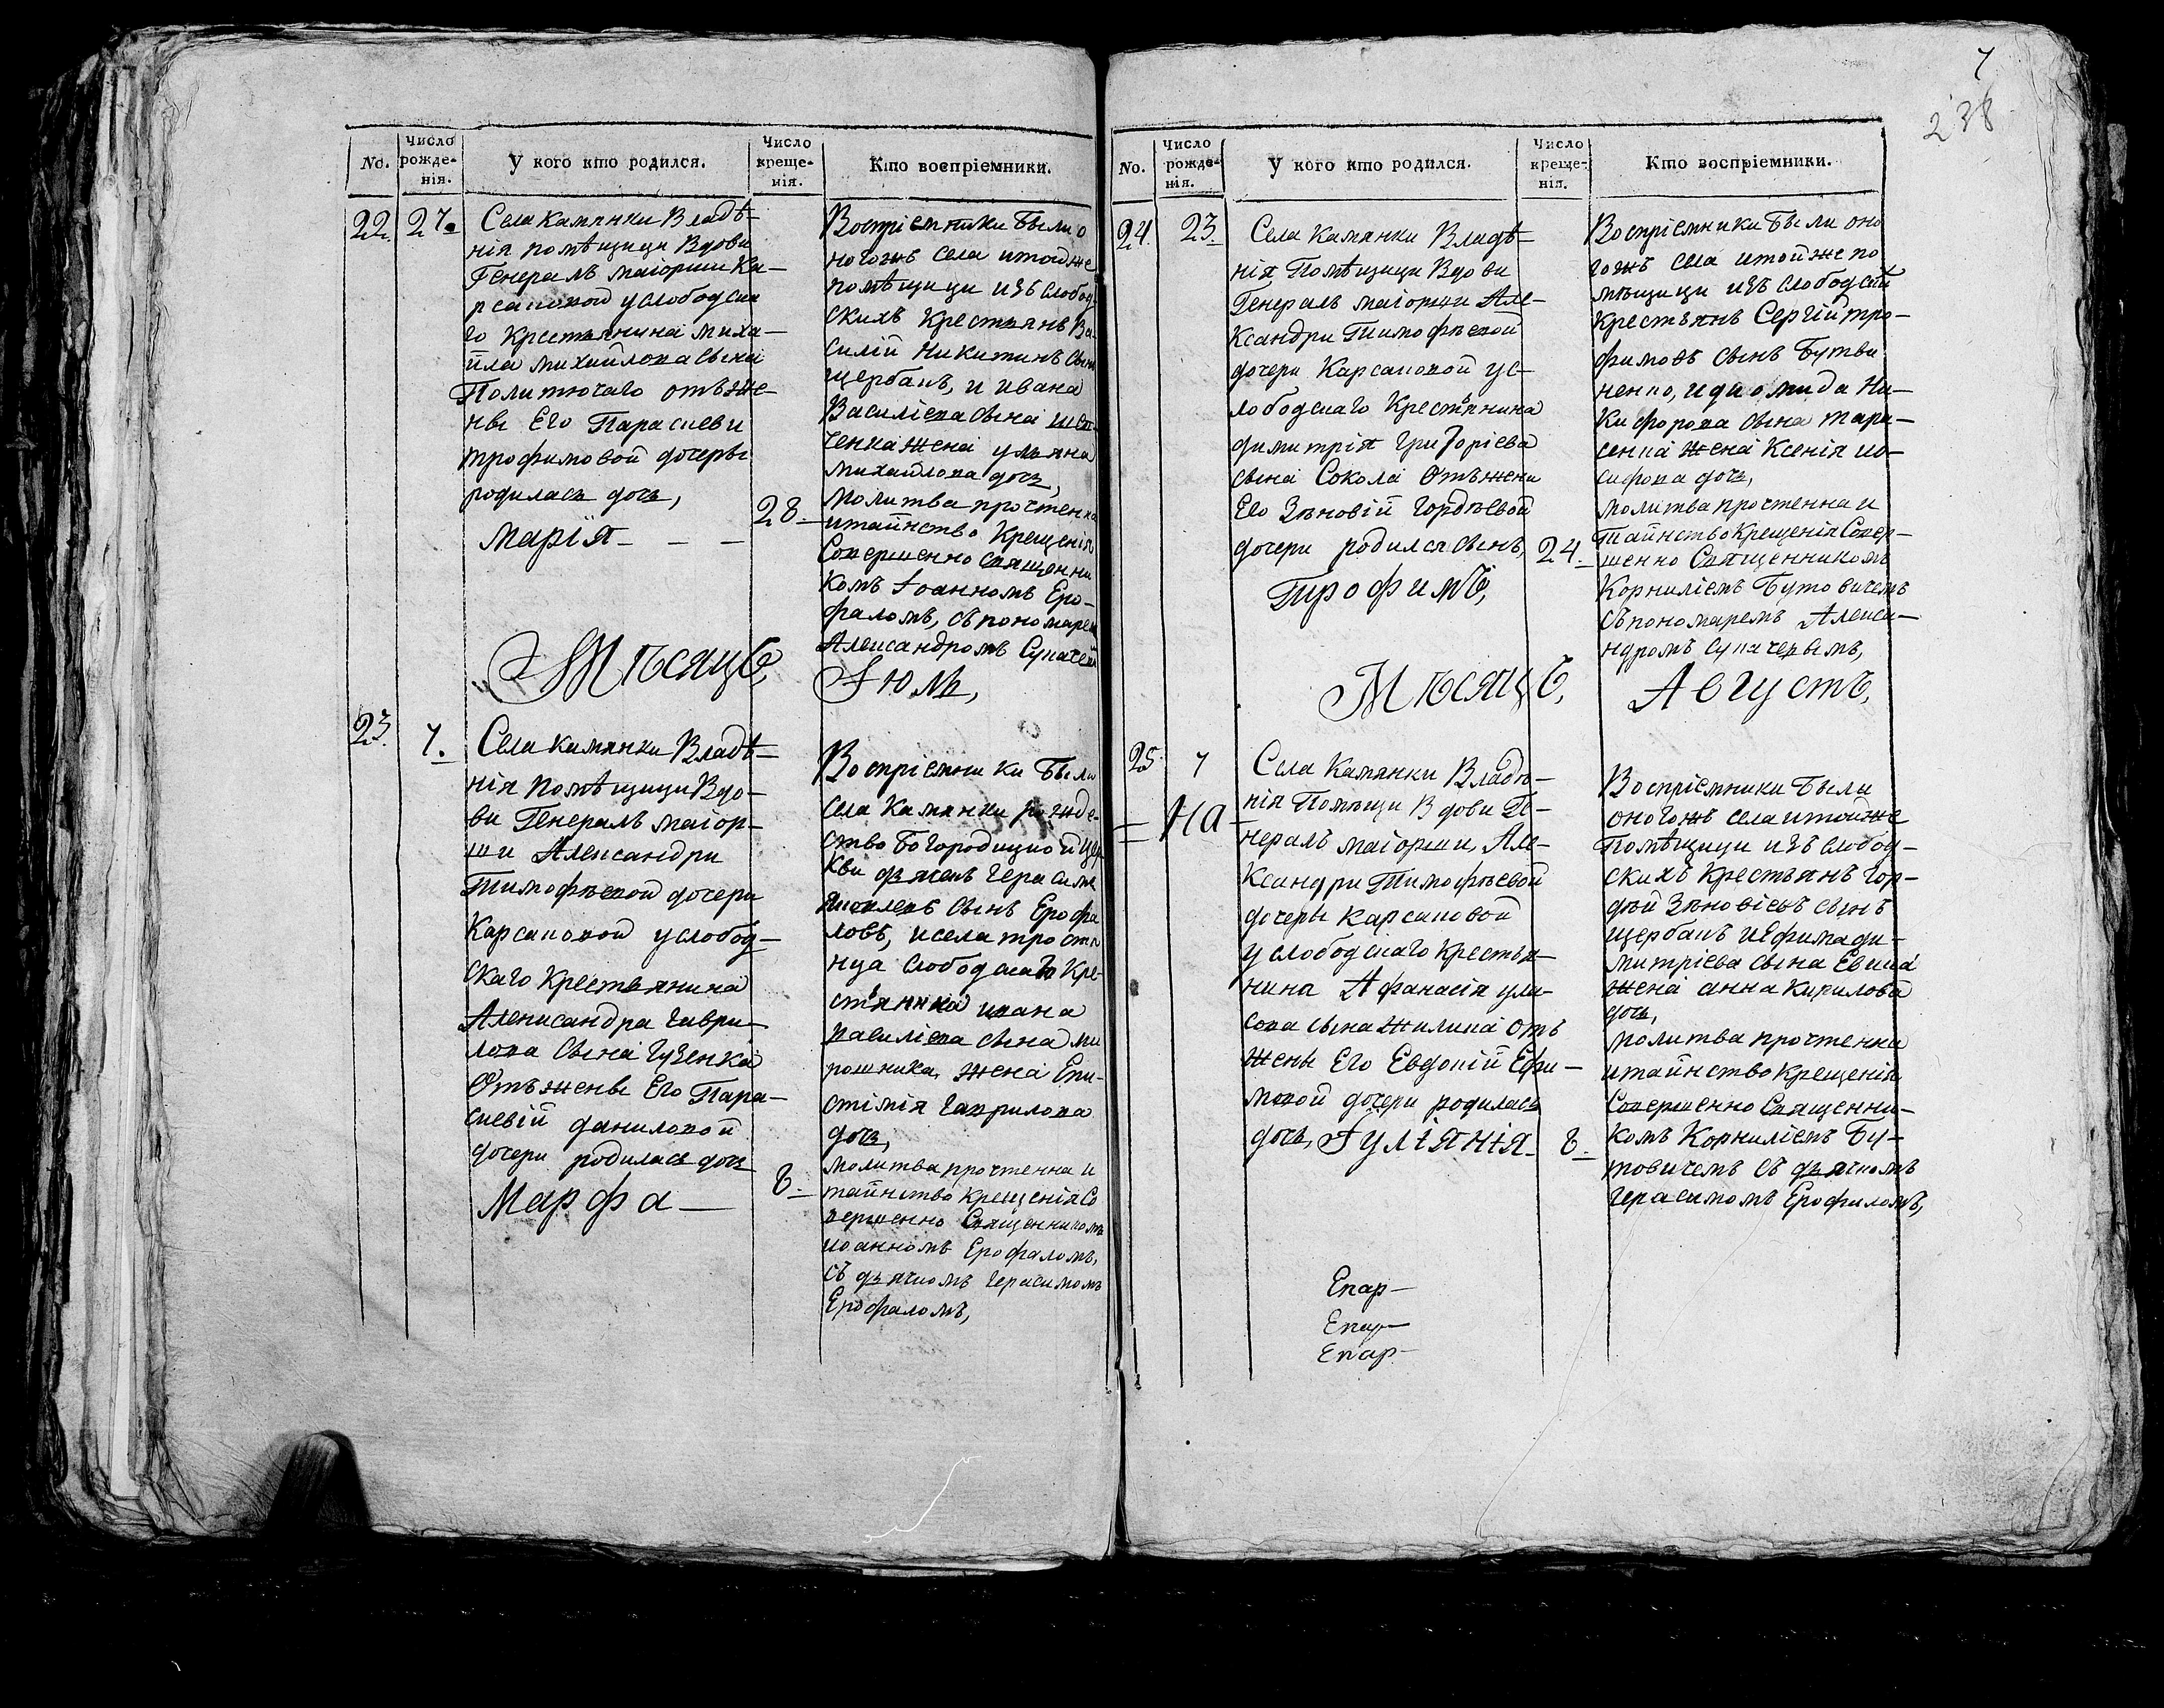 No.
Число рожде-
нія.
У кого кто родился.
Число
креще-
нія.
Кто воспріемники.
22.
27.
Села камянки Владѣ-
нія помѣщици Вдови
Генералъ маіорши Ка-
рсаповой у слободска
го Крестьянина миха-
йла михайлова сына
Политючаго отъ же-
ны Его Параскеви
трофимовой дочеры
родилась дочь,
Марія - - -
28
Воспріемники Были о
ногожъ села итойже
помѣщици изъ слобод-
скихъ Крестьянъ Ва-
силій Никитинъ сынъ
щербакъ, и ивана
Василіева сына
женка жена ульяна
михайлова дочь,
молитва прочтенна
итайнство Крещенія
Совершенно Священни
комъ Іоанномъ Еро-
фаломъ, съ пономарем
Александромъ
Мѣсяцъ,
Іюль,
23.
7.
Села камянки Владѣ-
нія Помѣщици Вдо-
ви Генералъ маіор-
ши Александри
Тимофѣевой дочери
Карсаповой у слобод-
скаго Крестьянина
Александра Гаври-
лова сына Гузенка
Отъ жены Его Пара-
скевій даниловой
дочери родилась дочь
Марфа -
8.
Воспріемники Были
села Камянки рожде-
ство Богородицкой цер
кви дьячекъ Герасимъ
Яковлевъ сынъ Ерофа
ловъ, исела трости
нца Слободскаго Кре-
стьянина ивана
василіева сына ми
рошника, жена Епи-
стімія Гаврилова
дочь,
молитва прочтенна и
тайнство Крещенія Со
вершенно Священникомъ
иоанномъ Ерофаломъ,
съ дьячкомъ Герасимомъ
Ерофаломъ,
7
238
No.
Число
рожде-
нія.
У кого кто родился.
Число
креще-
нія.
Кто воспріемники.
24.
23.
Села Камянки Владѣ-
нія Помѣщици Вдови
Генералъ маіорши Але-
ксандри Тимофѣевой
дочери Карсаповой ус-
лободскаго Крестьянина
димитрія Григоріева
сына Сокола Отъ жени
Его Зѣновій Гордѣевой
дочери родился сынъ,
Трофимъ,
24.
Воспріемники Были оно
гожъ села итойже по
мѣщици изъ слободской
крестьянъ Сергій тро-
фимовъ сынъ Бутви
ненко, и диомида Ни-
кифорова сына тара-
сенка жена Ксенія ио-
сифова дочь,
молитва прочтенна и
Тайнство Крещенія Совер-
шенно Священникомъ
Корниліемъ Бутовичемъ
съ пономаремъ Алекса-
ндромъ
Мѣсяцъ,
Августъ,
25.
7
На
Села Камянки Владѣ-
нія Помѣщи Вдови Ге-
нералъ маіорши, Але-
ксандри Тимофѣевой
дочеры Карсаповой
у слободскаго крестья-
нина Афанасія ула-
сова сына жилина отъ
жены Его Евдокій Ефи-
мовой дочери родилась
дочь, Іуліянія
8.
Воспріемники Были
оногожъ села итойже
Помѣщици изъ слобод-
скихъ крестьянъ Гор-
дѣй Зѣновіевъ сынъ
щербакъ и Ефима ди-
митріева сына
жена анна Кирилова
дочь,
молитва прочтенна
итайнство крещенія
Совершенно Священни-
комъ Корниліемъ Бу-
товичемъ съ дьячкомъ
Герасимомъ Ерофаломъ,
Епар-
Епар-
Епар-